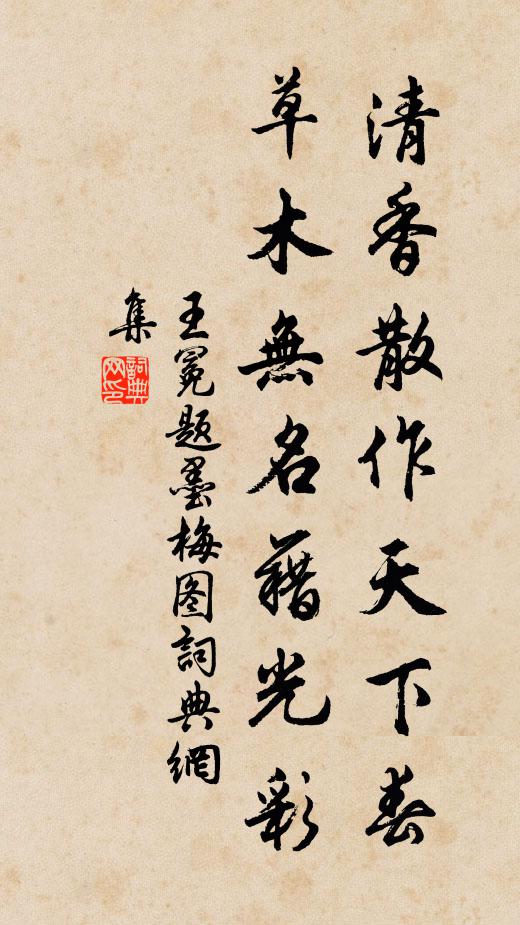 清香散作天下春
草木無名藉光彩
王冕题墨梅图詞典網
集
詞典
网印